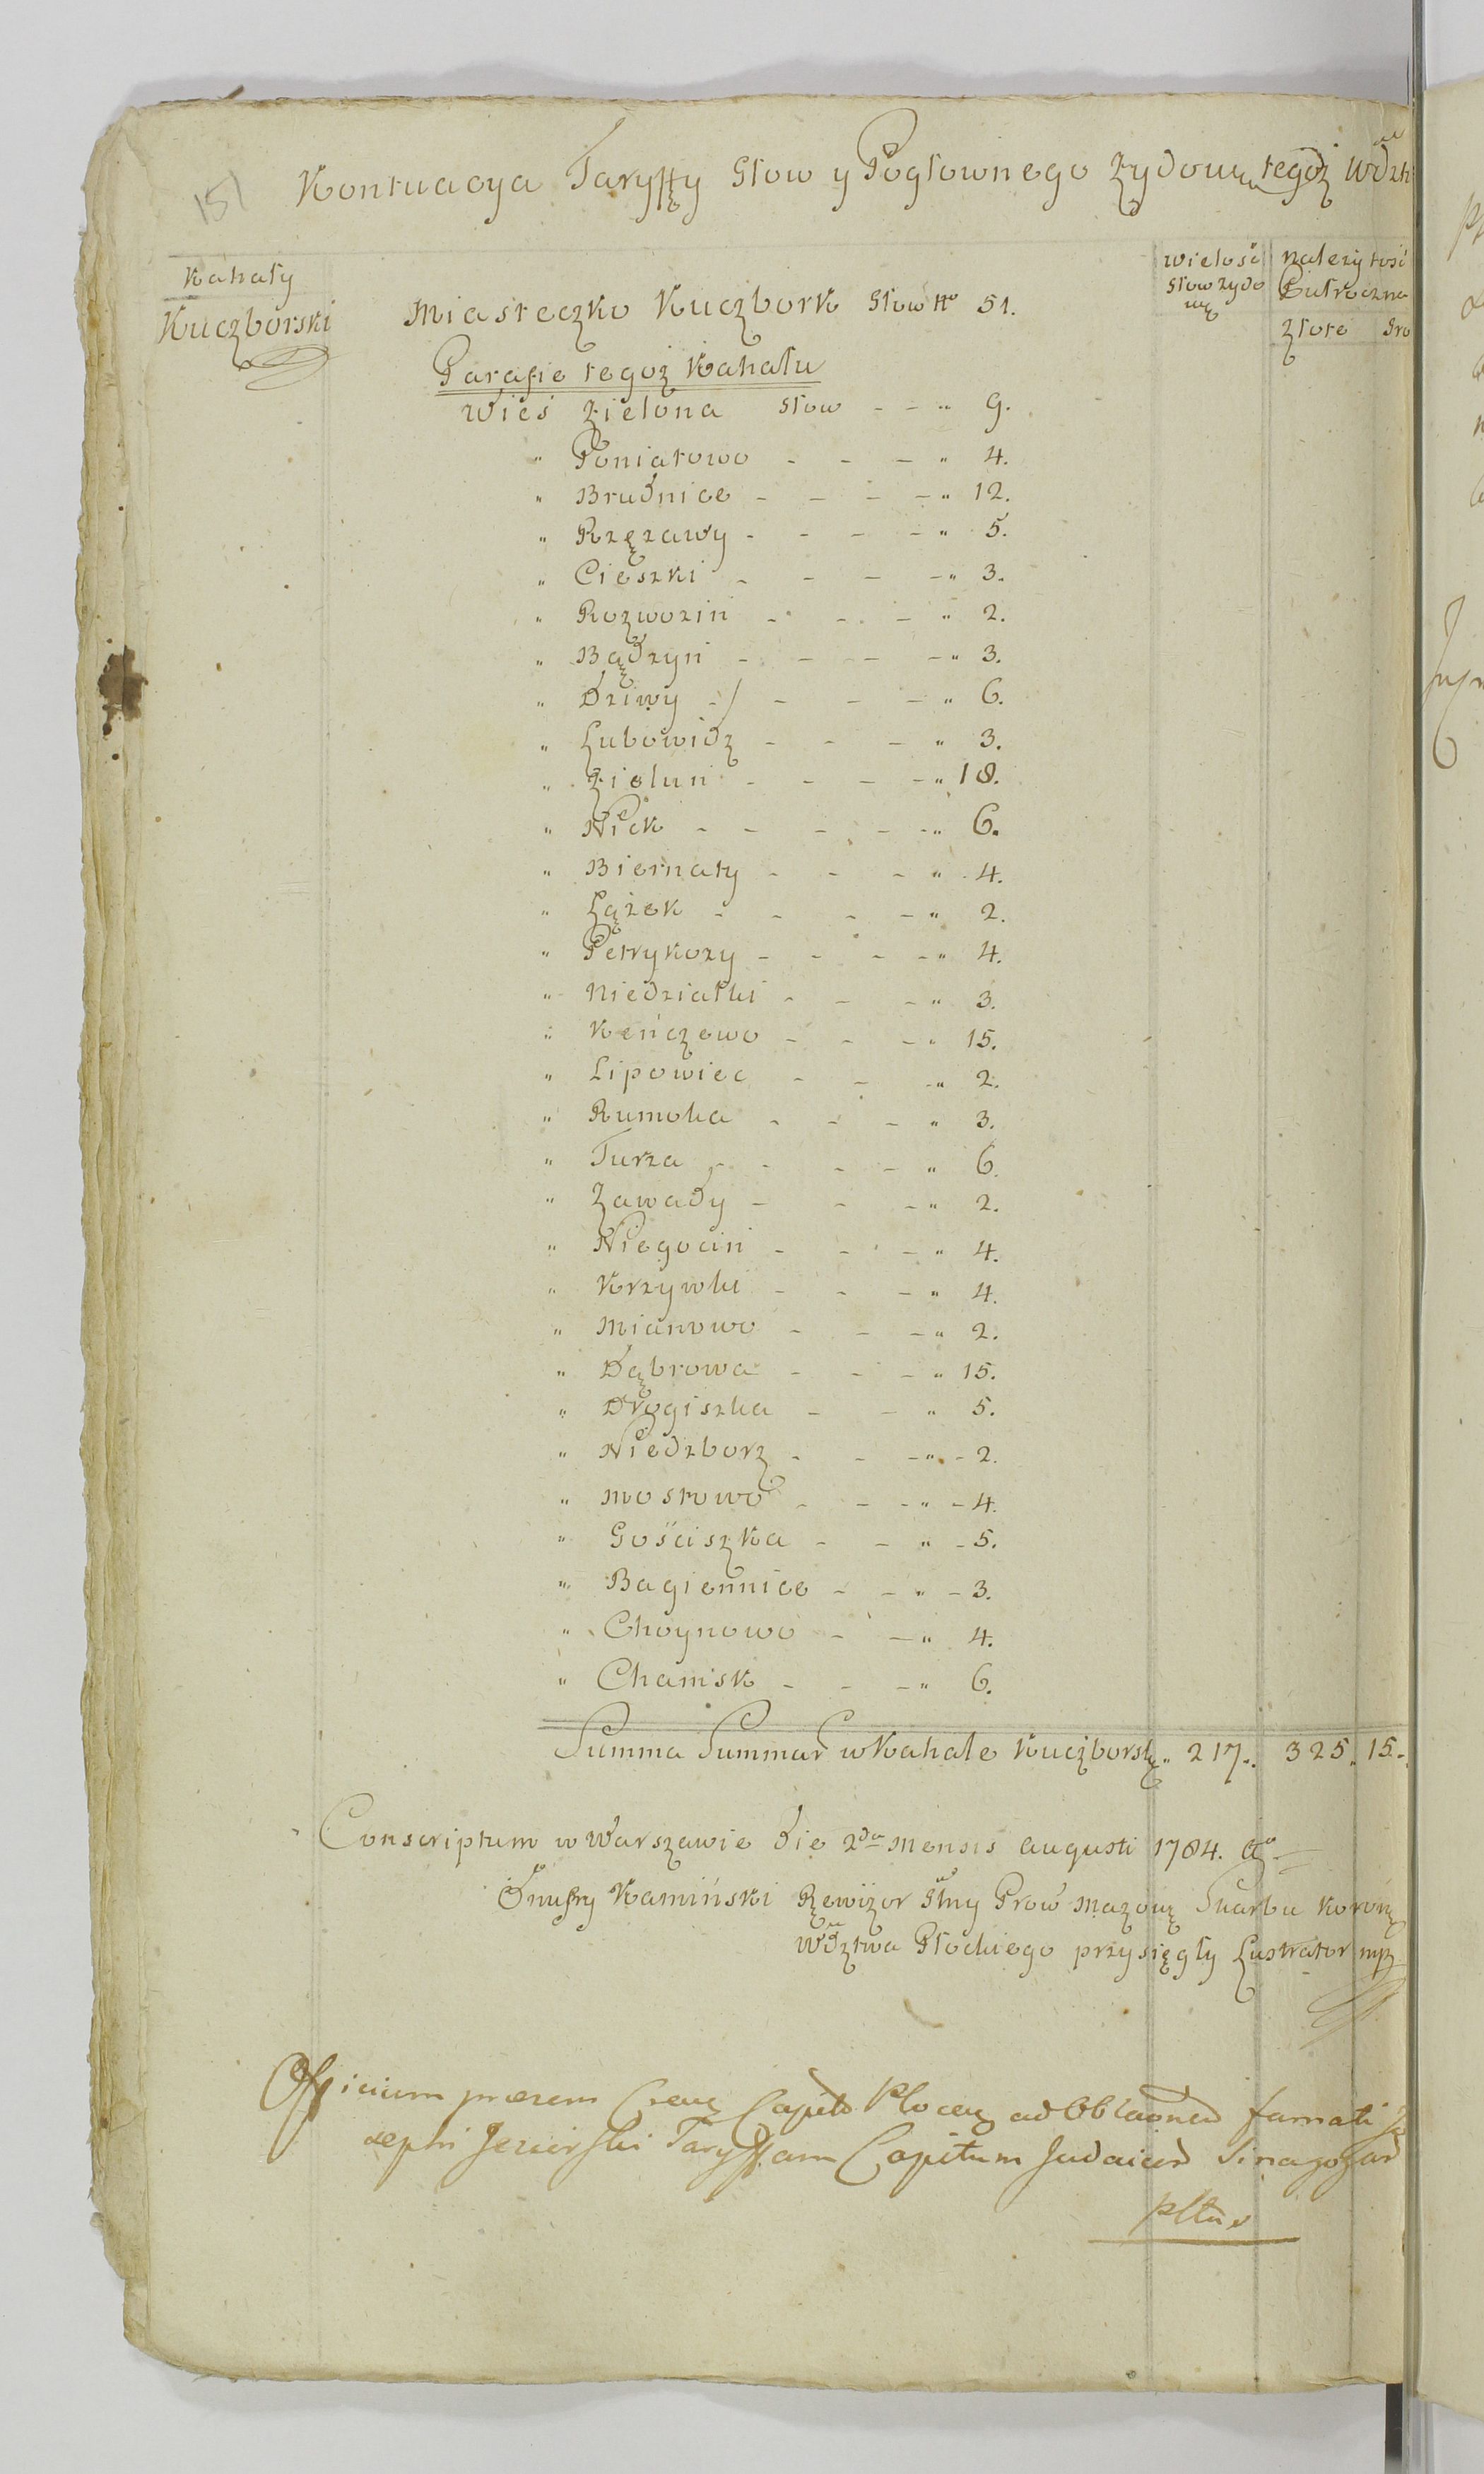 151
Kontuacya Taryffy Głow y Pogłownego Żydow. tegoż Wdztt
Kahały
Kuczborski
wielość
Głow zydo
wę
należytość
Pułroczna
Złote Gro
Miasteczko Kuczbork Głow No 51.
Parafie tegoż Kahału
Wieś Zielona Głow - - " 9.
" Poniatowo - - - " 4.
" Brudnice - - - - " 12.
" Rzężawy - - - - " 5.
" Cieszki - - - - " 3.
" Rozwozin - - - " 2.
" Bądzyn - - - - " 3.
" Dziwy - - - - " 6.
" Lubowidz - - - " 3.
" Zielun - - - - " 18.
" Nick - - - - - " 6.
" Biernaty - - - " 4.
" Łążek - - - - " 2.
" Petrykozy - - - - " 4.
" Niedziałki - - - " 3.
" Kęńczewo - - - " 15.
" Lipowiec - - - " 2.
" Rumoka - - - " 3.
" Turza - - - - " 6.
" Zawady - - - " 2.
" Niegocin - - - " 4.
" Krzywki - - - " 4.
" Mianowo - - - " 2.
" Dąbrowa - - - " 15.
" Drogiszka - - " 5.
" Niedzborz - - - " - 2.
" Mostowo - - - " - 4.
" Gościszka - - " - 5.
" Bagiennice - - " - 3.
" Choynowo - - " 4.
" Chamsk - - - " 6.
Summa Summar w Kahale Kuczborsk. " 217. 325. 15.
Conscriptum w Warszawie die 2da Mensis Augusti 1784. ao
Onufry Kamiński Rewizor Głny Prow Mazow Skarbu Koron
Wdztwa Płockiego przysięgły Lustrator mp
Officium præsens Capit Plocen ad Oblaonem famati Jo
sephi Jezierski Taryffam Capitum Judaicor Sinagogar